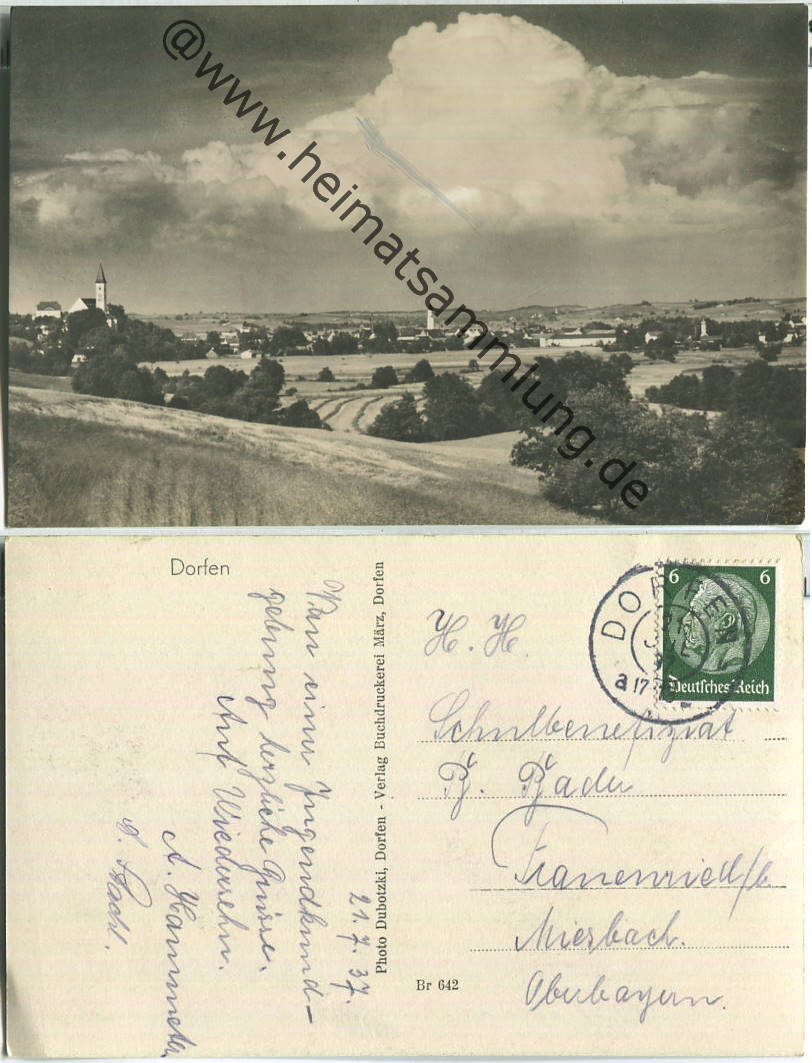 @www.heimatsammlung.de
Dorfen
Von einer Jugendkund-
gebung herzliche Grüsse.
Auf Wiedersehn.
A. Hammeter
21.7.37.
Photo Dubotzki, Dorfen - Verlag Buchdruckerei März, Dorfen
Br 642
DORFEN
a 17
6 6
Deutsches Reich
H. H.
Schulbenefiziat
Bader
Frauenried/b.
Miesbach.
Oberbayern.